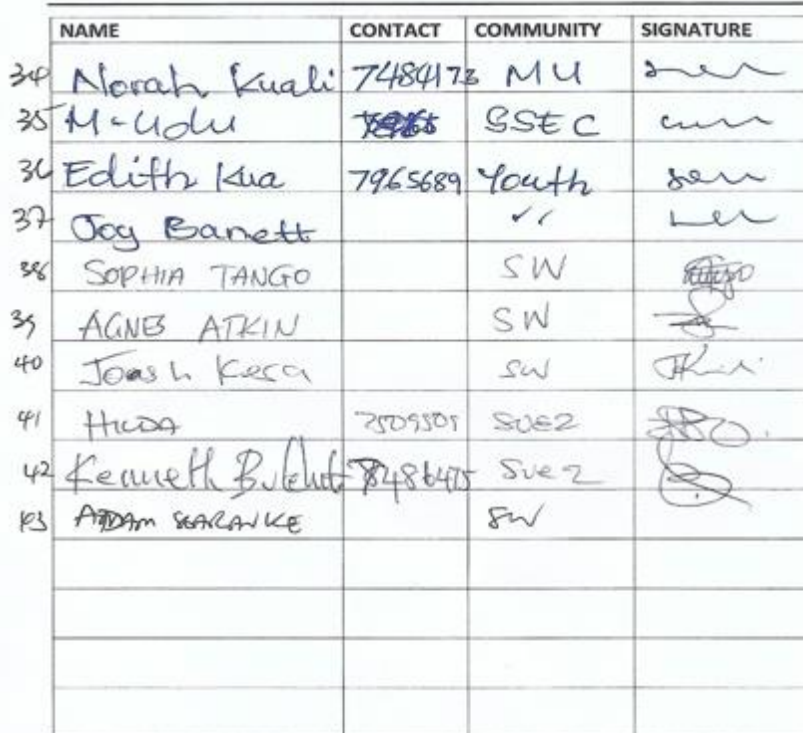 NAME CONTACT COMMUNITY SIGNATURE
34 Norah Kuali 7484173 MU
35 M-Udu SSEC
36 Edith Kua 7965689 Youth
37 Joy Banett ✓✓
38 SOPHIA TANGO SW
39 AGNES ATKIN SW
40 Joash Kesa SW
41 HILDA 7509509 SUEZ
42 Kenneth 7486475 Suez
43 SW